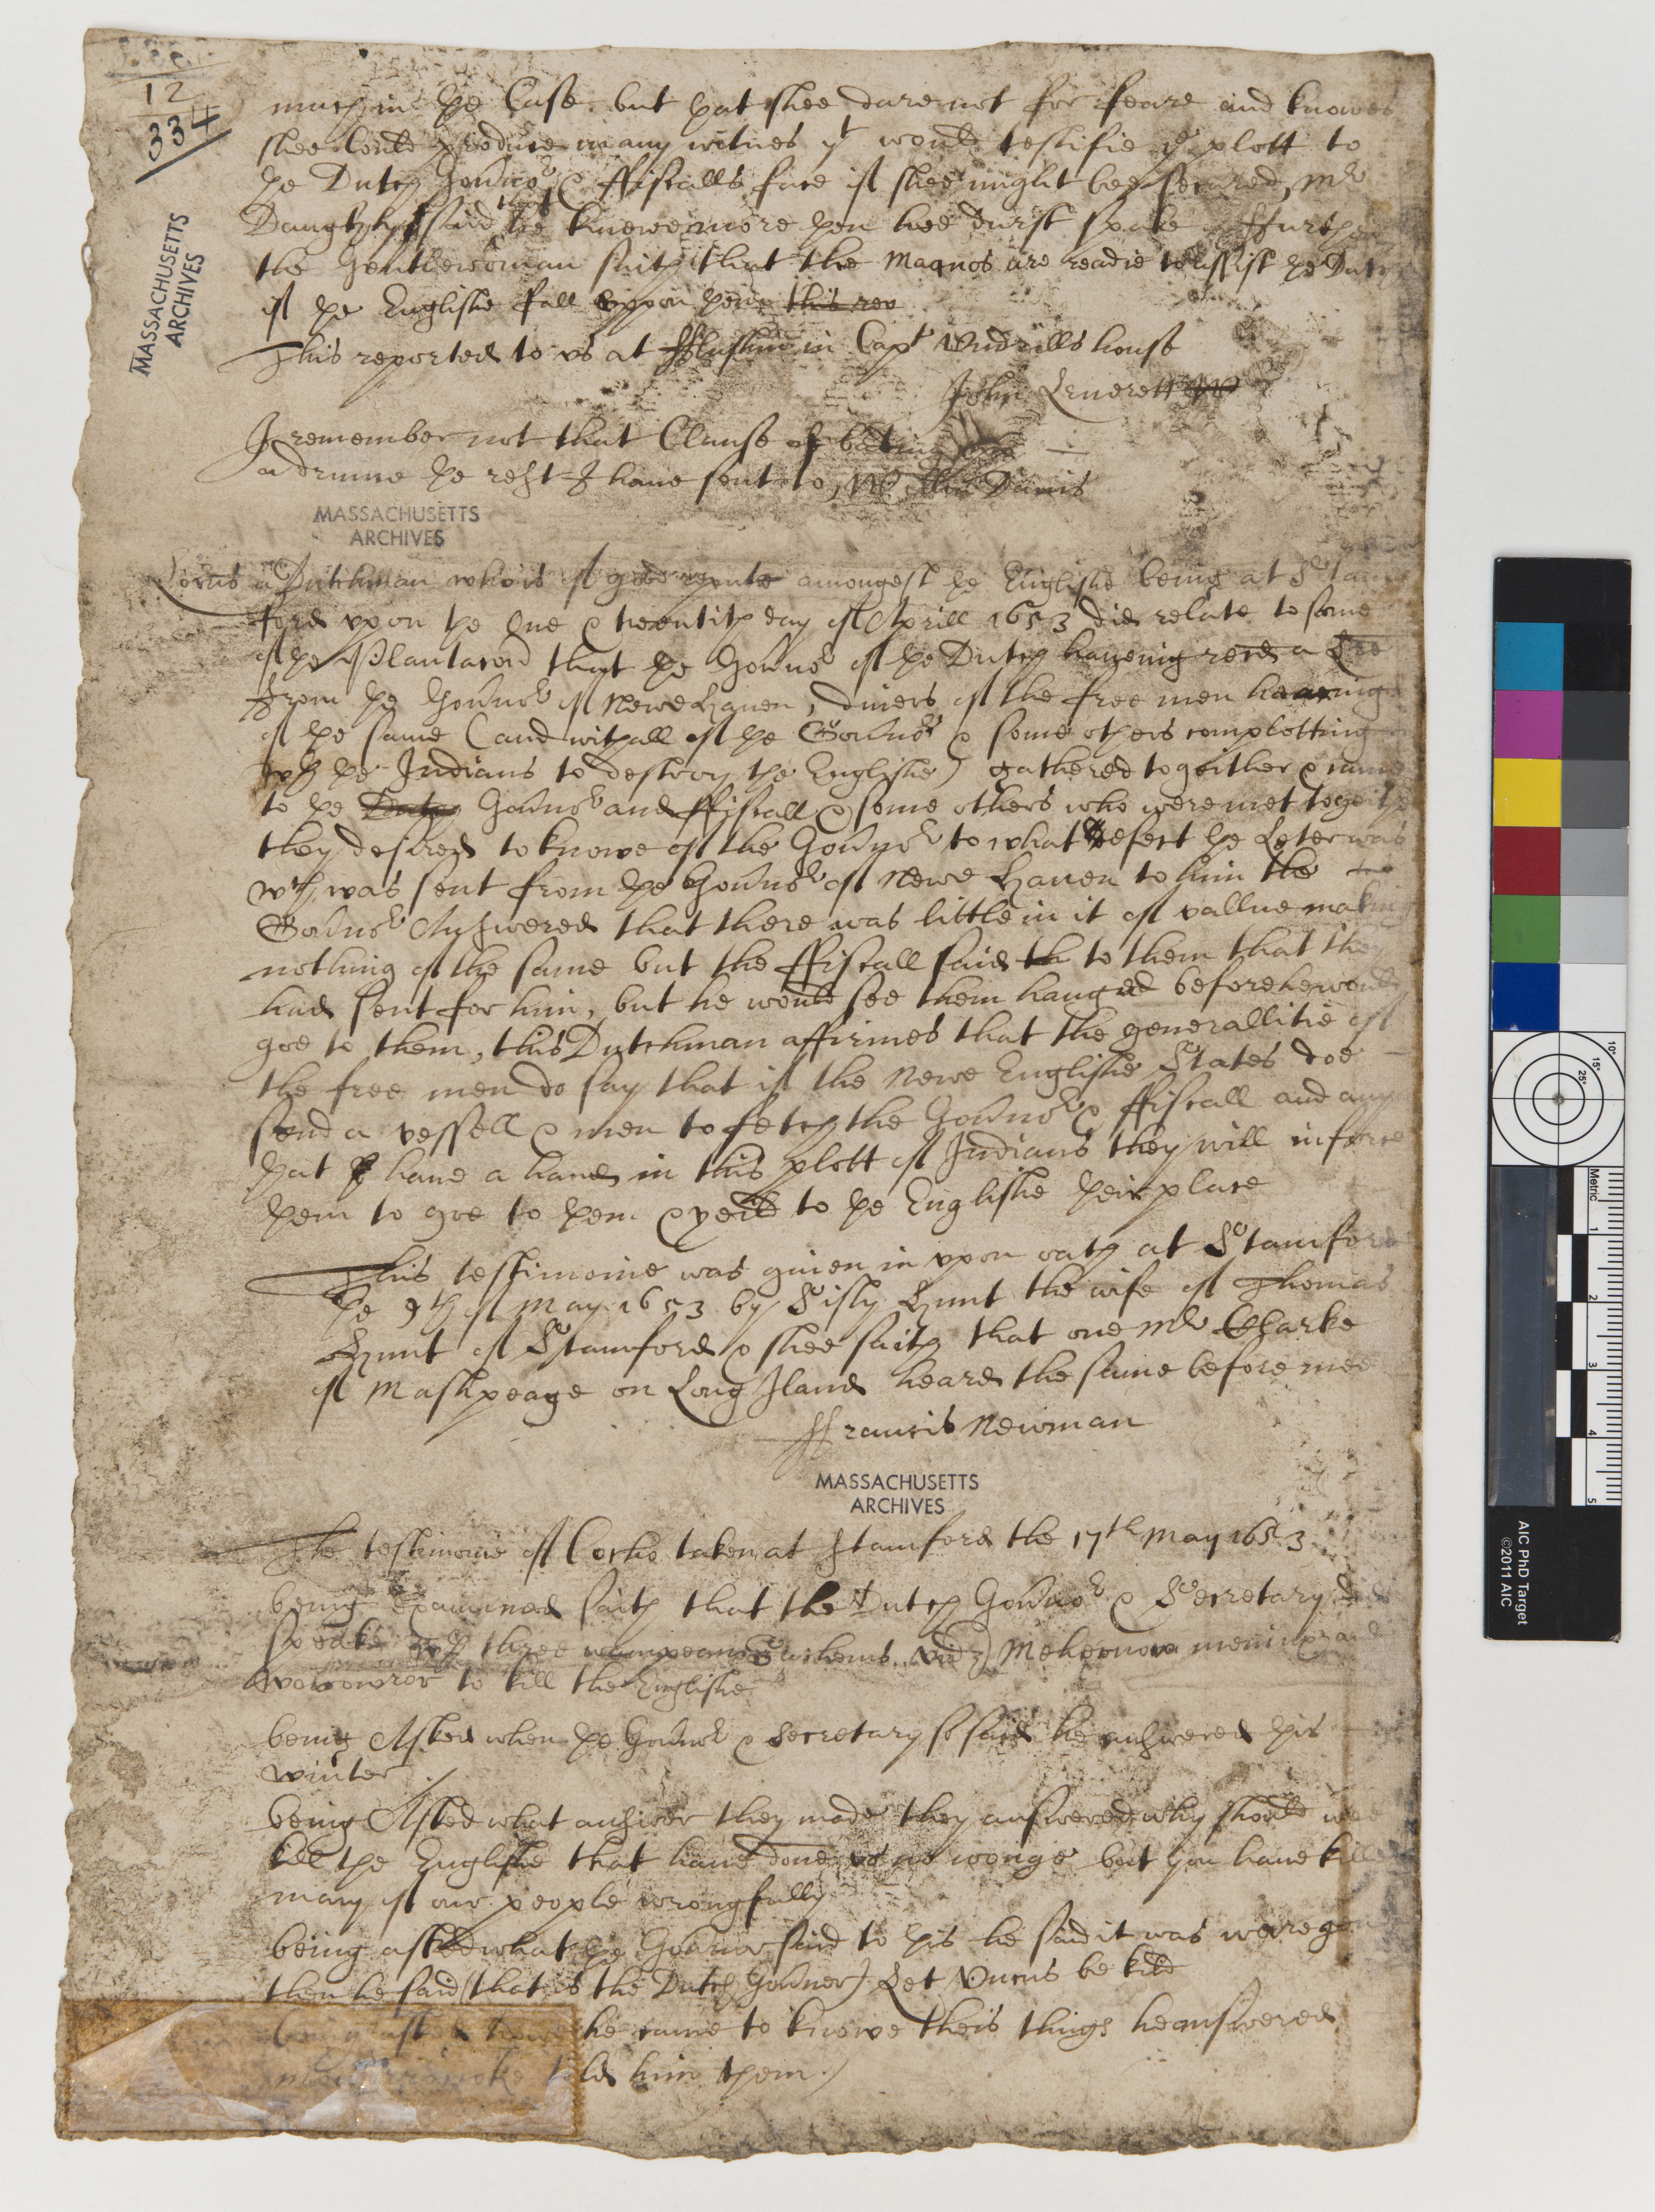 12
334
MASSACHUSETTS
ARCHIVES
much in þe Case. but þat shee dare not for feare and knowes
shee Could produce many witnes yt would testifie ye plott to
þe Dutch Gouernor & ffiscalls face if shee might bee secured, Mr
said that he knewe more þen hee durst speake. ffurther
the Gentlewoman saith that the Maquos are readie to Assist þe Dutch
if þe Englishe fall vppon þem this rep
This reported to vs at fflushing in Capt Vndrills house
John Leuerett
I remember not that Clause of beating
a drume þe rest I haue sent to, Davis
MASSACHUSETTS
ARCHIVES
a Dutchman who is of good repute amongest þe Englishe being at Stam
ford vpon the One & twentith day of Aprill 1653 did relate to some
of þe Plantacon that þe Gouernor of þe Dutch haueing recd a Lre
from þe Gouernor of Newe Hauen, diuers of the free men heareing
of þe same (and withall of þe Gouernors & some others complotting
wth þe Indians to destroy the Englishe) gathered togeither & came
to þe Dutch Gouernor and ffiscall & some others who were met togeith
they desired to knowe of the Gouernor to what efect þe Leter was
wch was sent from þe Gouernor of Newe Hauen to him the
Gouernor Answered that there was little in it of vallue making
nothing of the same but the ffiscall said th to them that they
had sent for him, but he would see them hanged before he would
goe to them, this Dutchman affirmes that the generallitie of
the free men do say that if the Newe Englishe States doe
send a vessell & men to fetch the Gouernor & ffiscall and any
þat haue a hand in this plott of Indians they will inforce
þem to goe to þem & yeild to þe Englishe þeir place
This testimonie was giuen in vpon oath at Stamford
þe 9th of May 1653 by Sisly Hunt the wife of Thomas
Hunt of Stamford & shee saith that one Mr Clarke
of Mashpeage on Long Iland heard the same before mee
ffrancis Newman
MASSACHUSETTS
ARCHIVES
The testimonie of taken at Stamford the 17th May 1653
being examined saith that the Dutch Gouernor & Secretary did
speake wth three Sachems vidz and
to kill the Englishe
being Asked when þe Gouernor & Secretary so said he answered þis
winter
being Asked what answer they made they answered why should we
kill the Englishe that haue done vs no wronge but you haue killed
many of our people wrongfully
being asked what þe Gouernor said to þis he said it was
then he said (that is the Dutch Gouernor) Let Vncus be kild
being asked howe he came to knowe theis things he answered
told him them.)
AIC PhD Target
©2011 AIC
Metric
1
2
3
4
5
10°
15°
25°